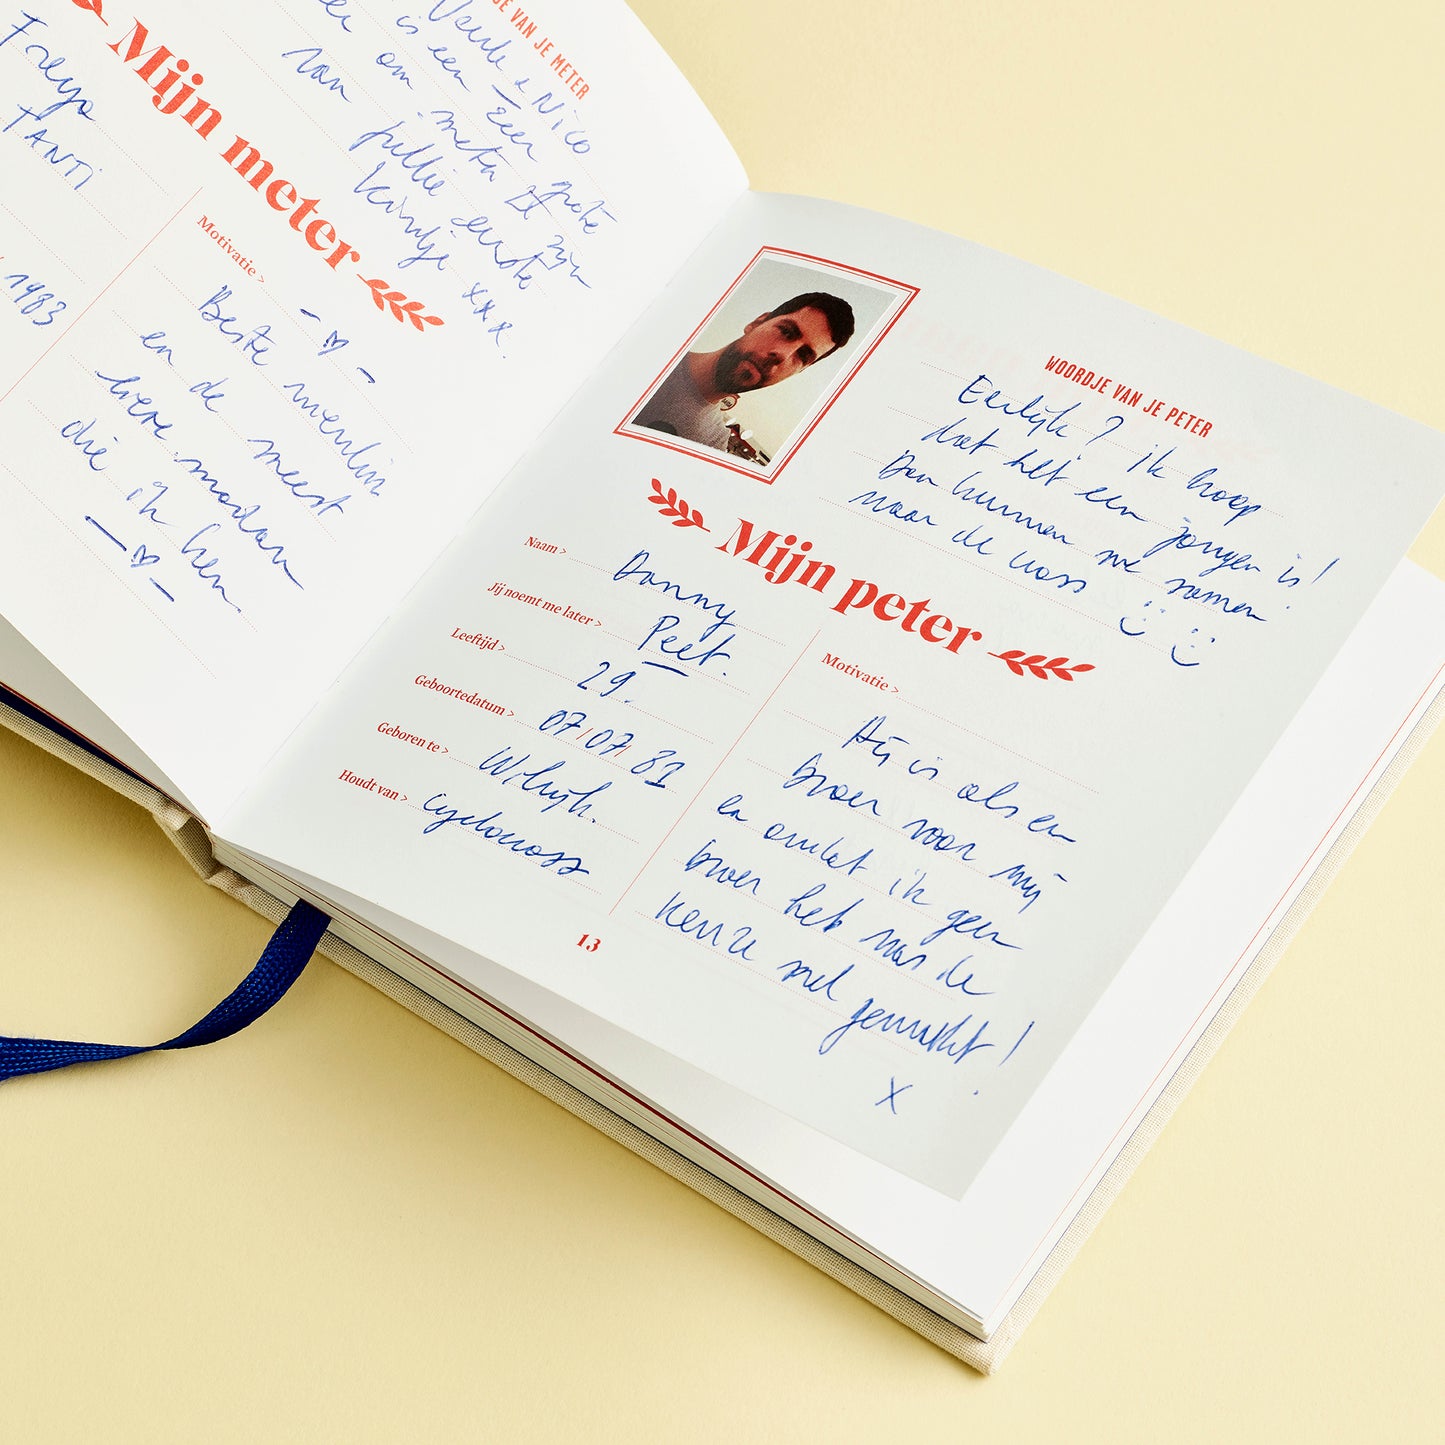 JE VAN JE METER
Veerle & Nico
is een Zeer grote
eer om meter te zijn
van jullie eerste
kindje xxx.
Mijn meter
Freya
TANTI
1983
Motivatie >
Beste vriendin
en de meest
lieve madam
die ik ken.
WOORDJE VAN JE PETER
Eerlijk? ik hoop
dat het een jongen is!
Dan kunnen we samen
naar de cross
Mijn peter
Naam > Danny
Jij noemt me later > Peet.
Leeftijd > 29.
Geboortedatum > 07/07/81
Geboren te > Wilrijk.
Houdt van > cyclocross
Motivatie >
Hij is als een
broer voor mij
en omdat ik geen
broer heb was de
keuze snel gemaakt!
X
13